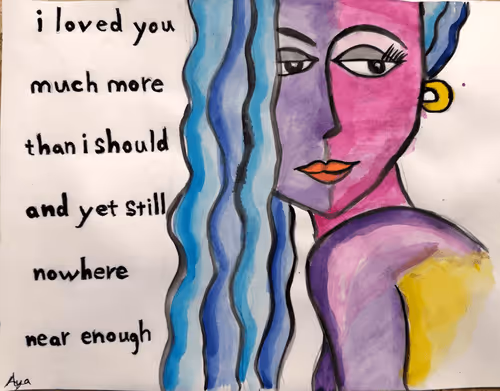 i loved you
much more
than i should
and yet still
nowhere
near enough
Aya